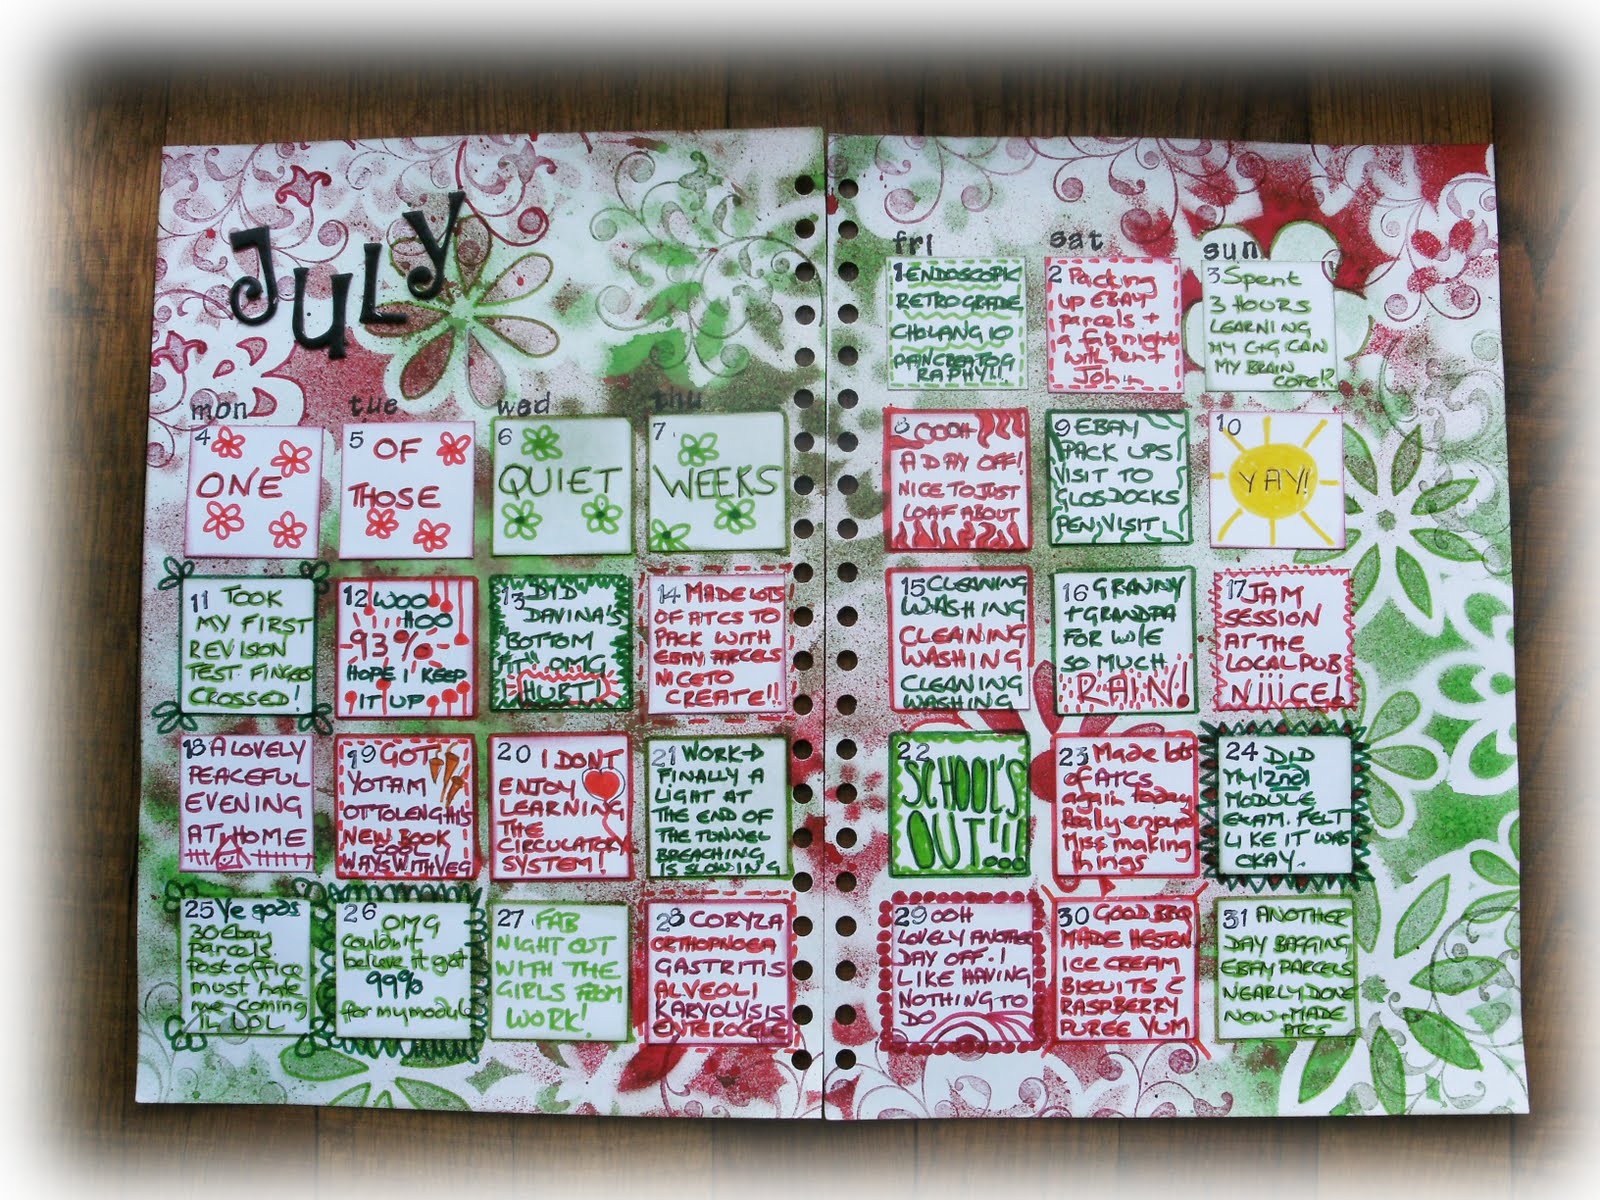 JULY
fri
sat
sun
1 ENDOSCOPIC
RETROGRADE
CHOLANGIO
PANCREATOG
RAPHY!!
2 Packing
UP EBAY
parcels +
a fab night
with Pen +
John
3 Spent
3 HOURS
LEARNING
MY C+G CAN
MY BRAIN
COPE!?
mon
tue
wed
thu
4
ONE
5
OF
THOSE
6
QUIET
7
WEEKS
8
OOOH
A DAY OFF!
NICE TO JUST
LOAF ABOUT
9 EBAY
PACK UPS
VISIT TO
GLOS DOCKS
PEN, VISIT
10
YAY!
11 TOOK
MY FIRST
REVISION
TEST. FINGERS
CROSSED!
12 WOO
HOO
93%
HOPE I KEEP
IT UP
13 DID
DAVINA'S
BOTTOM
FIT, OMG
HURT!
14 MADE LOTS
OF ATCS TO
PACK WITH
EBAY PARCELS
NICE TO
CREATE!!
15 CLEANING
WASHING
CLEANING
WASHING
CLEANING
WASHING
16 GRANNY
+ GRANDPA
FOR W/E
SO MUCH
RAIN!
17 JAM
SESSION
AT THE
LOCAL PUB
NIIICE!
18 A LOVELY
PEACEFUL
EVENING
AT HOME
19 GOT
YOTAM
OTTOLENGHI'S
NEW BOOK
COOL
WAYS WITH VEG
20 I DONT
ENJOY
LEARNING
THE
CIRCULATORY
SYSTEM!
21 WORK→
FINALLY A
LIGHT AT
THE END OF
THE TUNNEL
BREACHING
IS SLOWING
22
SCHOOL'S
OUT!!...
23 Made lots
of ATCs
again today
Really enjoyed
Miss making
things
24 DID
MY 2nd
MODULE
EXAM. FELT
LIKE IT WAS
OKAY..
25 Ye gods
30 Ebay
parcels.
Post office
must hate
me coming
in LOL
26
OMG
couldn't
believe it got
99%
for my module
27 FAB
NIGHT OUT
WITH THE
GIRLS FROM
WORK!
28 CORYZA
ORTHOPNOEA
GASTRITIS
ALVEOLI
KARYOLYSIS
ENTEROCELE
29 OOH
LOVELY ANOTHER
DAY OFF. I
LIKE HAVING
NOTHING TO
DO
30 GOOD BBQ
MADE HESTON
ICE CREAM
BISCUITS &
RASPBERRY
PUREE YUM
31 ANOTHER
DAY BAGGING
EBAY PARCELS
NEARLY DONE
NOW + MADE
ATCS